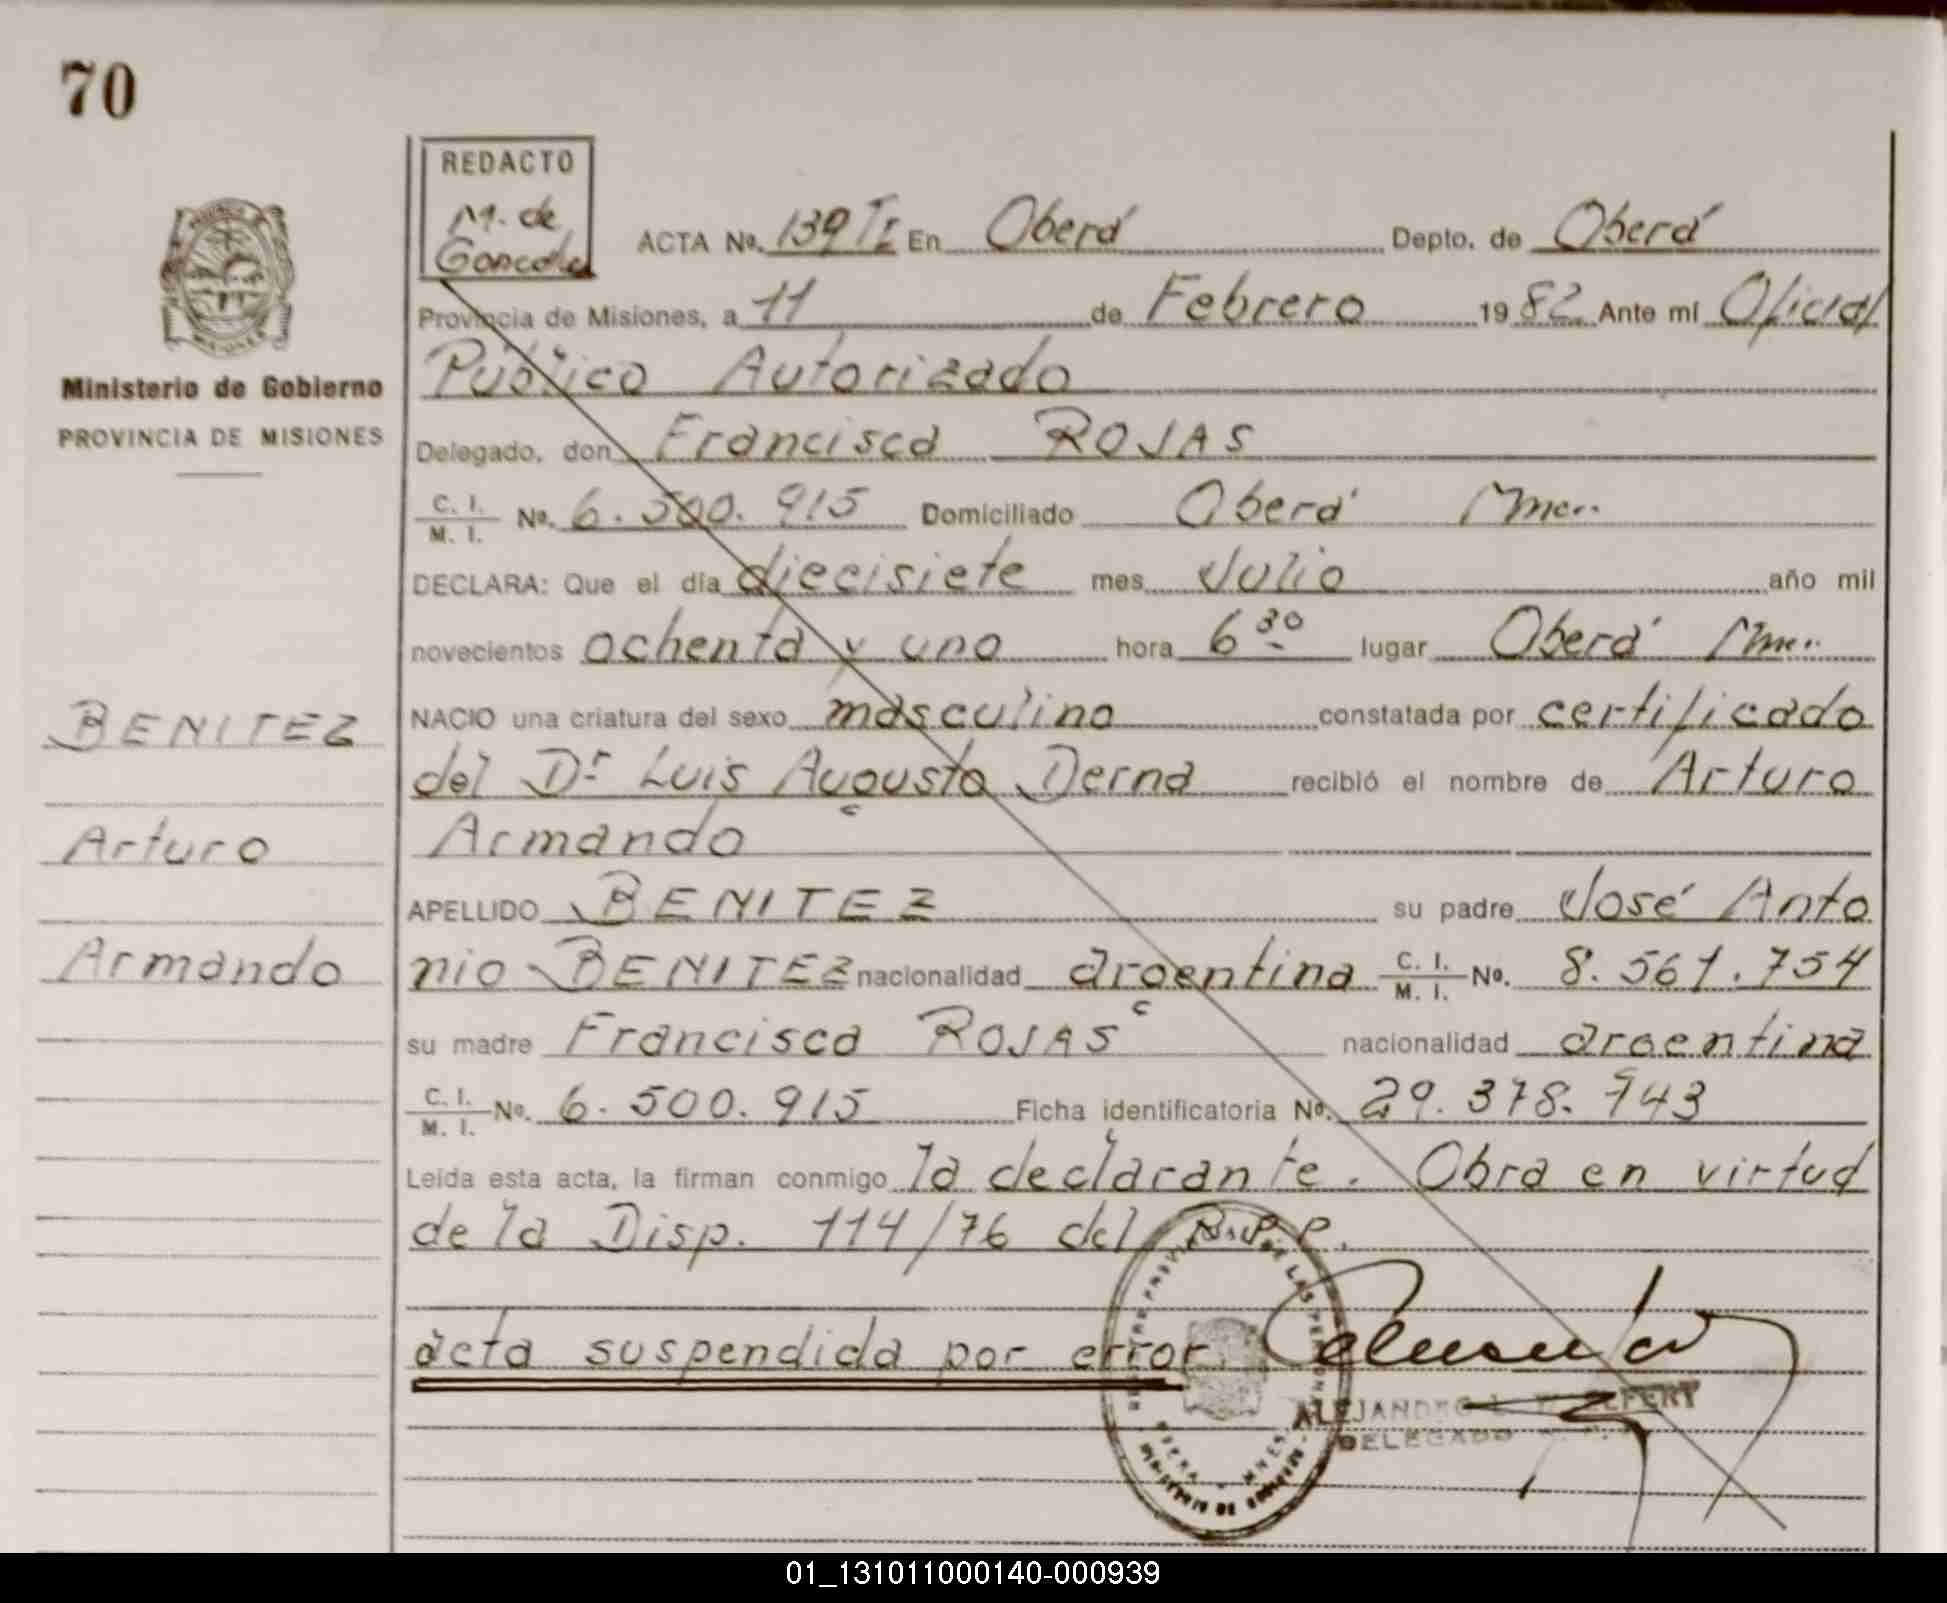 70
REDACTO
M. de
Gonzalez
ACTA No. 139 TI En Oberá Depto. de Oberá
Provincia de Misiones, a 11 de Febrero 1982 Ante mí Oficial
Público Autorizado
Delegado, don Francisca ROJAS
C. I.
M. I. No. 6.500.915 Domiciliado Oberá
DECLARA: Que el día diecisiete mes Julio año mil
novecientos ochenta y uno hora 6 30 lugar Oberá
NACIO una criatura del sexo masculino constatada por certificado
del Dr Luis Augusto Derna recibió el nombre de Arturo
Armando
APELLIDO BENITEZ su padre José Anto
nio BENITEZ nacionalidad argentina C. I.
M. I. No. 8.561.754
su madre Francisca ROJAS nacionalidad argentina
C. I.
M. I. No. 6.500.915 Ficha identificatoria No. 29.378.743
Leida esta acta, la firman conmigo la declarante. Obra en virtud
de la Disp. 114/76 del R.P.P.
acta suspendida por error.
ALEJANDRO
DELEGADO
Ministerio de Gobierno
PROVINCIA DE MISIONES
BENITEZ
Arturo
Armando
01_131011000140-000939